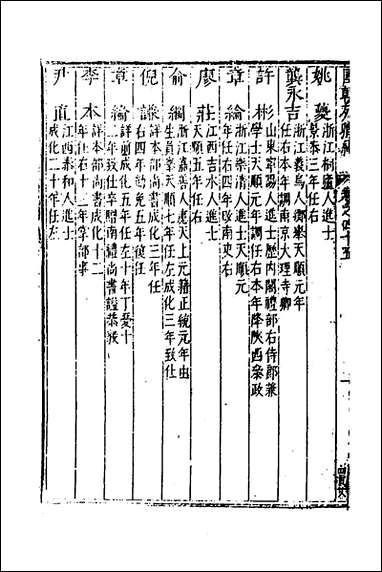 國朝列卿紀 卷之四十五
姚夔
浙江桐廬人進士
景泰三年任右
龔永吉
浙江義烏人鄉舉天順元年
任右本年調南京大理寺卿
許彬
山東寧陽人進士歷内閣禮部右侍郎兼
學士天順元年調任右本年降陝西叅政
章綸
浙江樂清人進士天順元
年任右四年改南吏右
廖莊
江西吉水人進士
天順五年任右
俞綱
浙江嘉善人應天上元籍正統元年由
生員舉天順七年任左成化三年致仕
倪謙
詳本部尚書成化三年任
右四年劾免五年復任
章綸
詳前成化五年任左十年丁憂十
二年致仕卒贈南禮尚書諡恭毅
李本
詳本部尚書成化十二
年任右十三年掌部事
尹直
江西泰和人進士
成化二十年任左